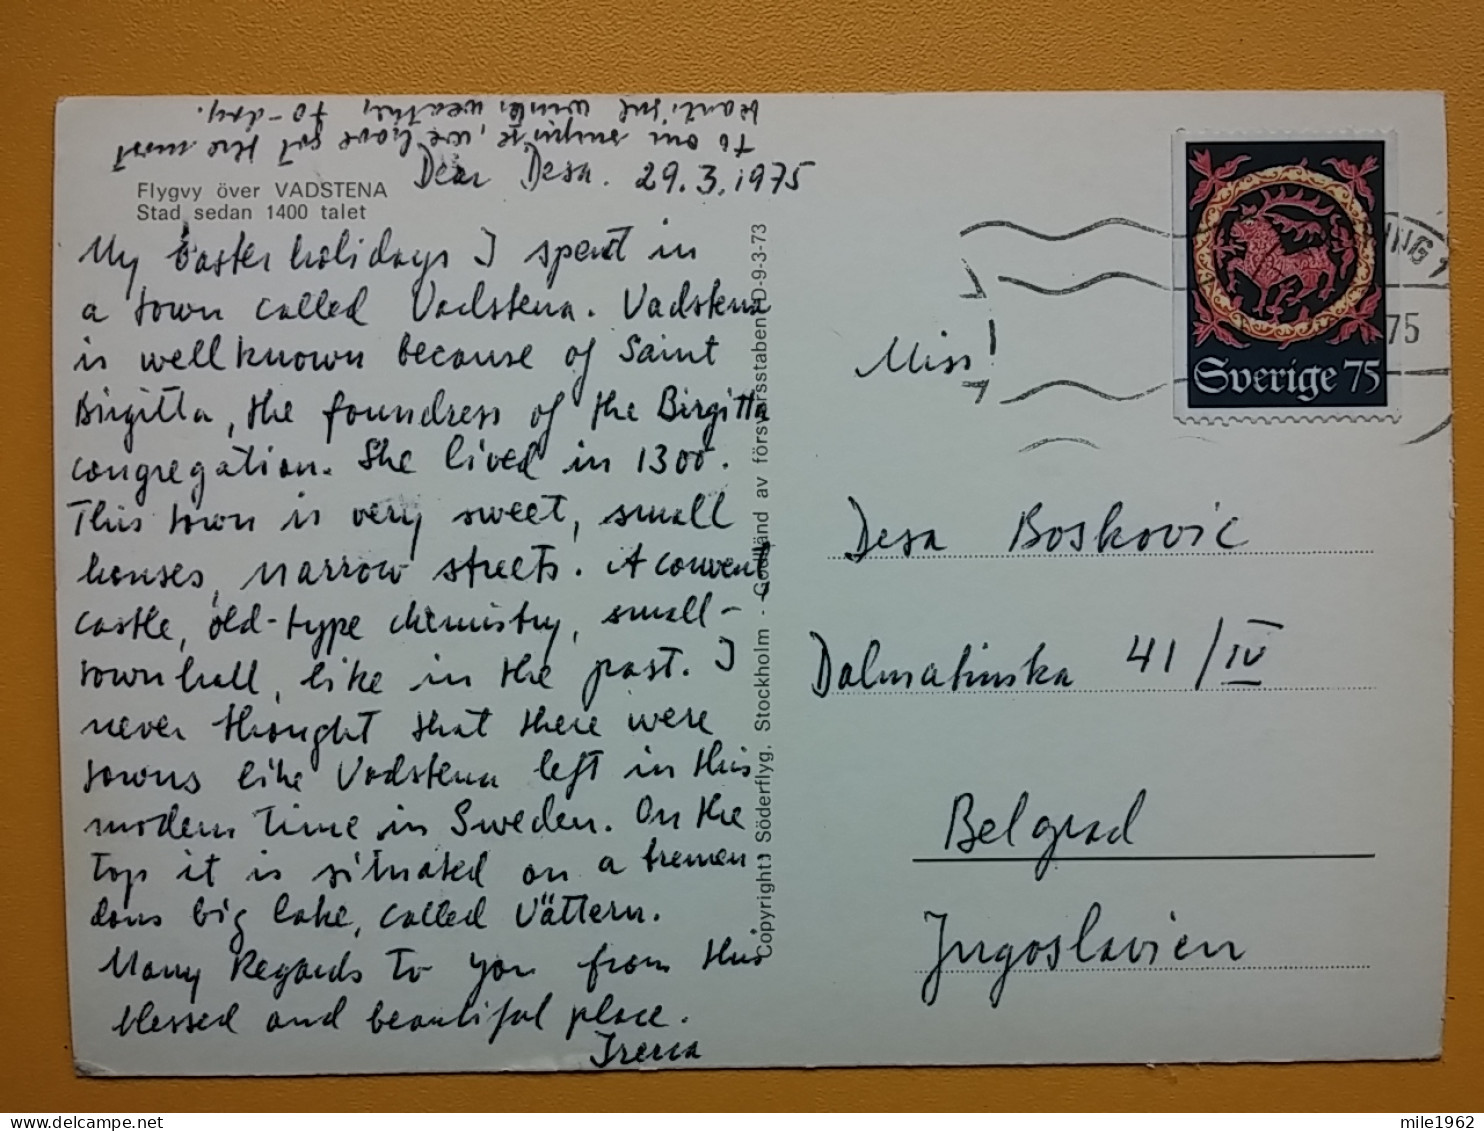 to our surprise, we have got the most
beautiful winter weather, to-day.
Dear Desa. 29.3.1975
Flygvy över VADSTENA
Stad sedan 1400 talet
My Easter holidays I spent in
a town called Vadstena. Vadstena
is well known because of Saint
Birgitta, the foundress of the Birgitta
congregation. She lived in 1300.
This town is very sweet, small
houses, narrow streets. A convent,
castle, old-type chemistry, small-
town hall, like in the past. I
never thought that there were
towns like Vadstena left in this
modern time in Sweden. On the
top it is situated on a tremen
dous big lake, called Vättern.
Many Regards to you from this
blessed and beautiful place.
Irena
Copyright: Söderflyg, Stockholm - Godkänd av försvarsstaben D-9-3-73
Sverige 75
ING 1
75
Miss
Desa Boskovic
Dalmatinska 41/IV
Belgrad
Jugoslavien
mile1962